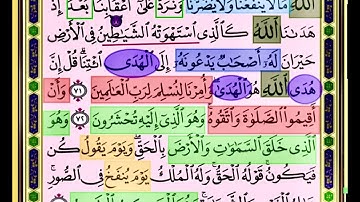 ٱللَّهِ مَا لَا يَنفَعُنَا وَلَا يَضُرُّنَا وَنُرَدُّ عَلَىٰٓ أَعْقَابِنَا بَعْدَ إِذْ
هَدَىٰنَا ٱللَّهُ كَٱلَّذِى ٱسْتَهْوَتْهُ ٱلشَّيَٰطِينُ فِى ٱلْأَرْضِ
حَيْرَانَ لَهُۥٓ أَصْحَٰبٌ يَدْعُونَهُۥٓ إِلَى ٱلْهُدَى ٱئْتِنَا ۗ قُلْ إِنَّ
هُدَى ٱللَّهِ هُوَ ٱلْهُدَىٰ ۖ وَأُمِرْنَا لِنُسْلِمَ لِرَبِّ ٱلْعَٰلَمِينَ ٧١ وَأَنْ
أَقِيمُوا۟ ٱلصَّلَوٰةَ وَٱتَّقُوهُ ۚ وَهُوَ ٱلَّذِىٓ إِلَيْهِ تُحْشَرُونَ ٧٢ وَهُوَ
ٱلَّذِى خَلَقَ ٱلسَّمَٰوَٰتِ وَٱلْأَرْضَ بِٱلْحَقِّ ۖ وَيَوْمَ يَقُولُ كُن
فَيَكُونُ ۚ قَوْلُهُ ٱلْحَقُّ ۚ وَلَهُ ٱلْمُلْكُ يَوْمَ يُنفَخُ فِى ٱلصُّورِ ۚ